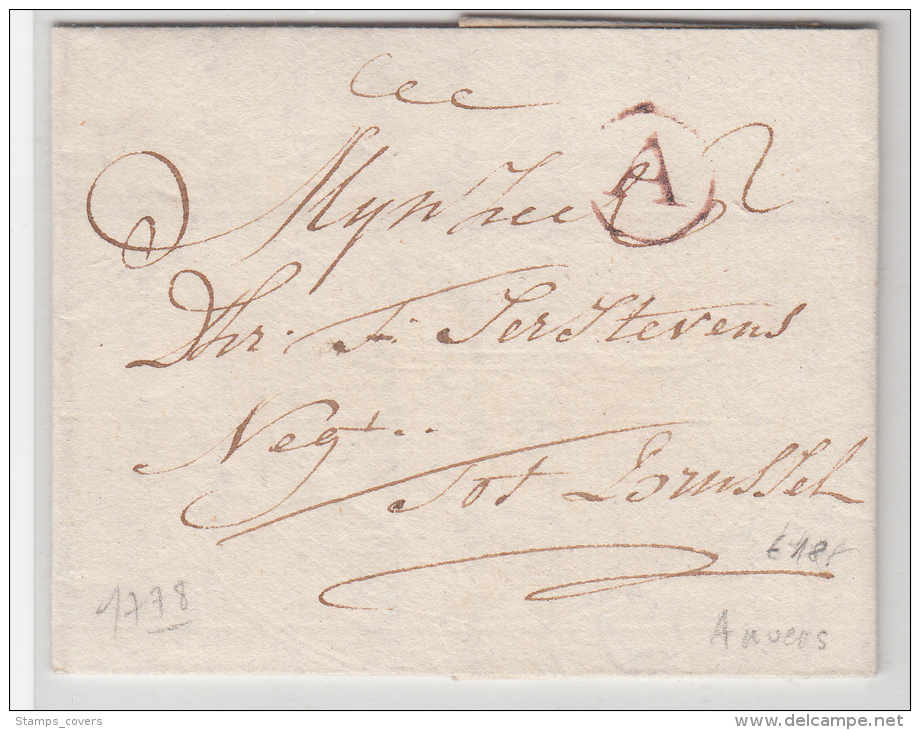 A
Mijn heer
Dhr. F. TerStevens
Negt..
Tot Brussel
1778
Anvers
Stamps_covers
www.delcampe.net